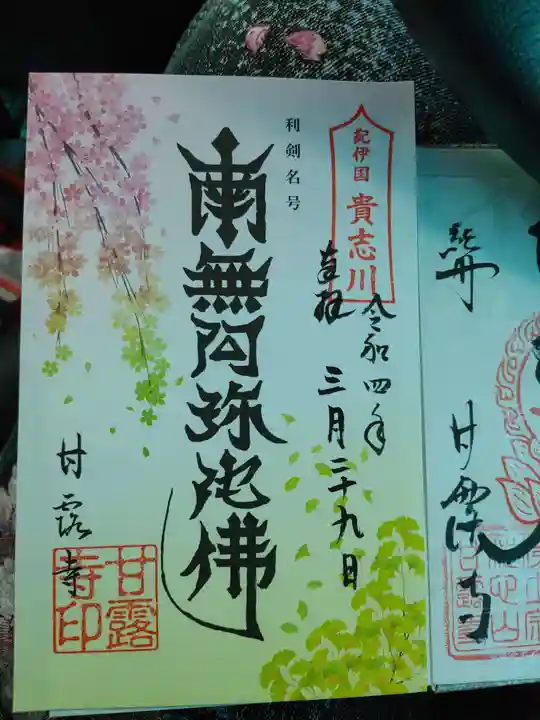 紀伊国
貴志川
奉拝
令和四年
三月二十九日
利剣名号
南無阿弥陀佛
甘露寺
甘露
寺印
甘露寺